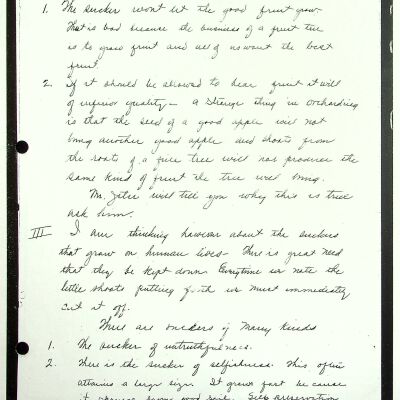 1. The sucker wont let the good fruit grow
That is bad because the business of a fruit tree
is to grow fruit and all of us want the best
fruit
2. If it should be allowed to bear fruit it will
of inferior quality - A strange thing in orcharding
is that the seed of a good apple will not
bring another good apple and shoots from
the roots of a fine tree will not produce the
same kind of fruit the tree will bring.
Mr. will tell you why this is true
ask him.
III I am thinking however about the suckers
that grow on human lives - There is great need
that they be kept down. Everytime we note the
little shoots putting forth we must immediately
cut it off.
There are suckers of many kinds
1. The sucker of untruthfulness.
2. There is the sucker of selfishness. This often
attains a large size. It grows fast because
it good soil. Self preservation